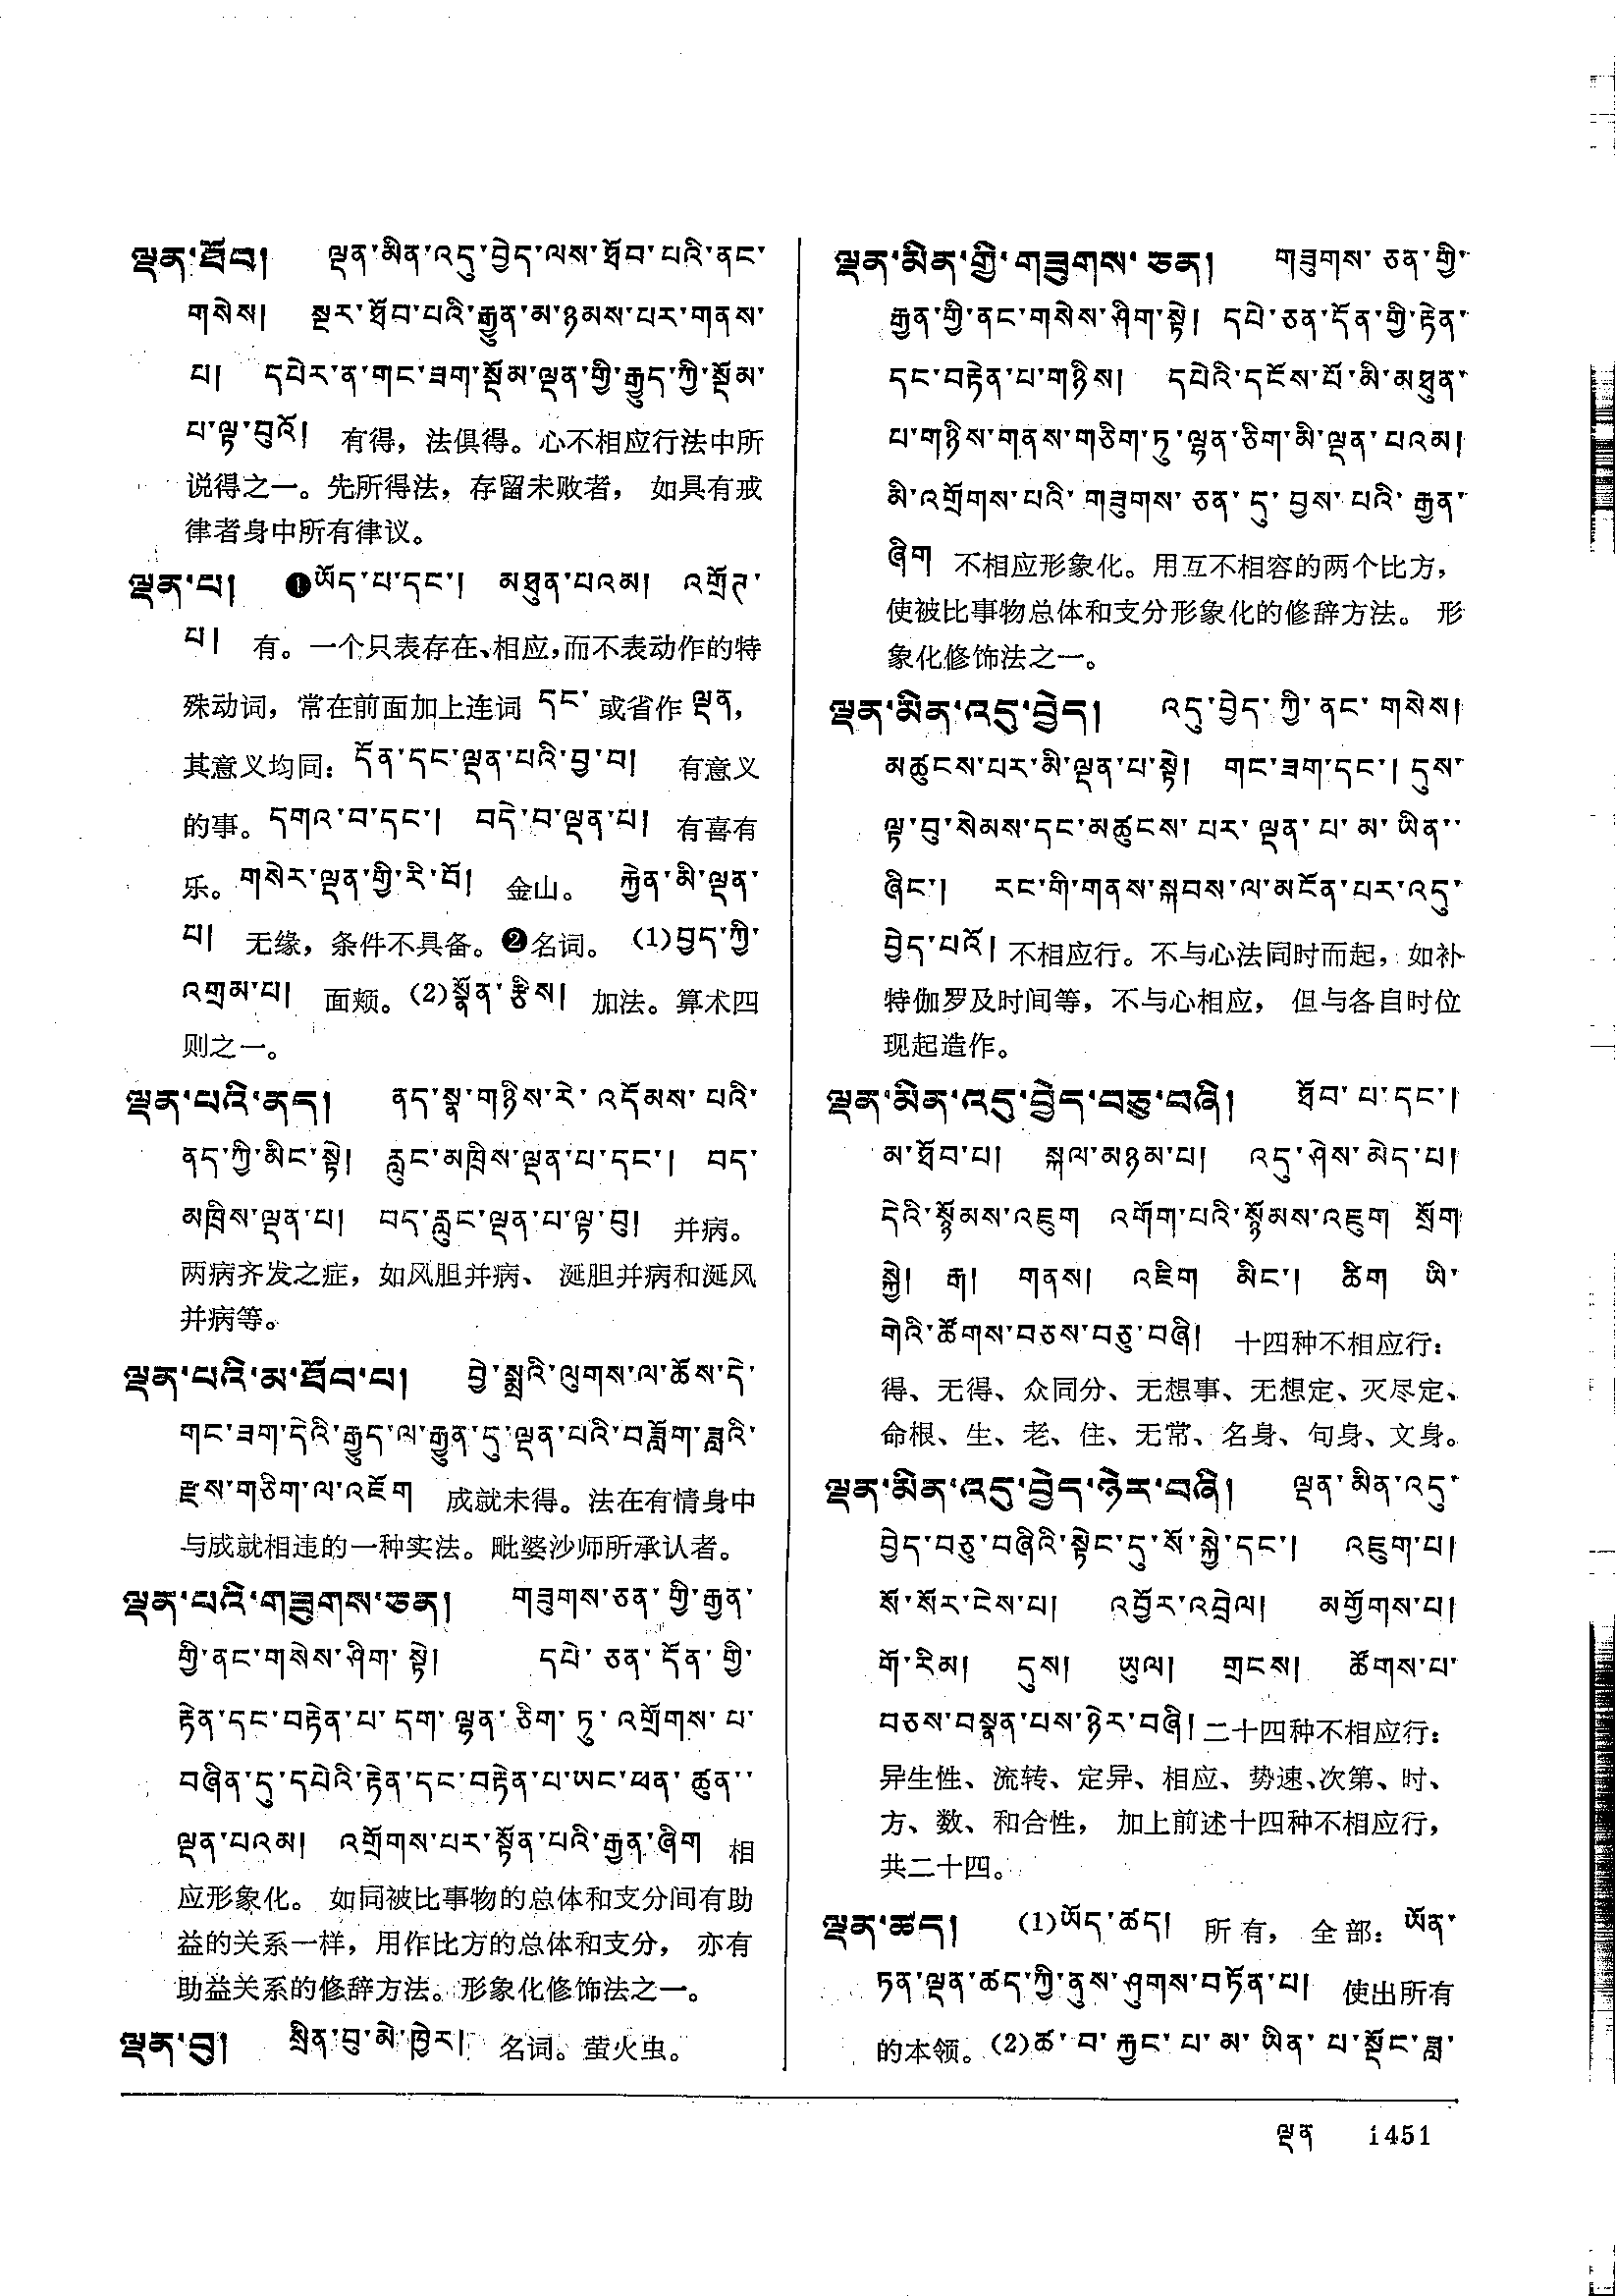 ལྡན་ཐོབ། ལྡན་མིན་འདུ་བྱེད་ལས་ཐོབ་པའི་ནང་
གསེས། སྔར་ཐོབ་པའི་རྒྱུན་མ་ཉམས་པར་གནས་
པ། དཔེར་ན་གང་ཟག་སྡོམ་ལྡན་གྱི་རྒྱུད་ཀྱི་སྡོམ་
པ་ལྟ་བུའོ། 有得，法俱得。心不相应行法中所
说得之一。先所得法，存留未败者，如具有戒
律者身中所有律议。
ལྡན་པ། ❶ཡོད་པ་དང་། མཐུན་པའམ། འགྲོཊ་
པ། 有。一个只表存在、相应，而不表动作的特
殊动词，常在前面加上连词 དང་ 或省作 ལྡན，
其意义均同：དོན་དང་ལྡན་པའི་བྱ་བ། 有意义
的事。དགའ་བ་དང་། བདེ་བ་ལྡན་པ། 有喜有
乐。གསེར་ལྡན་གྱི་རི་བོ། 金山。 རྐྱེན་མི་ལྡན་
པ། 无缘，条件不具备。❷名词。(1)བྱད་ཀྱི་
འགྲམ་པ། 面颊。(2)སྣོན་རྩིས། 加法。算术四
则之一。
ལྡན་པའི་ནད། ནད་སྣ་གཉིས་རེ་འདོམས་པའི་
ནད་ཀྱི་མིང་སྟེ། རླུང་མཁྲིས་ལྡན་པ་དང་། བད་
མཁྲིས་ལྡན་པ། བད་རླུང་ལྡན་པ་ལྟ་བུ། 并病。
两病齐发之症，如风胆并病、涎胆并病和涎风
并病等。
ལྡན་པའི་མ་ཐོབ་པ། བྱེ་སྨྲའི་ལུགས་ལ་ཆོས་དེ་
གང་ཟག་དེའི་རྒྱུད་ལ་རྒྱུན་དུ་ལྡན་པའི་བཟློག་ཟླའི་
རྫས་གཅིག་ལ་འཇོག 成就未得。法在有情身中
与成就相违的一种实法。毗婆沙师所承认者。
ལྡན་པའི་གཟུགས་ཅན། གཟུགས་ཅན་གྱི་རྒྱན་
གྱི་ནང་གསེས་ཤིག་སྟེ། དཔེ་ཅན་དོན་གྱི་
རྟེན་དང་བརྟེན་པ་དག་ལྷན་ཅིག་ཏུ་འགྲོགས་པ་
བཞིན་དུ་དཔེའི་རྟེན་དང་བརྟེན་པ་ཡང་ཕན་ཚུན་
ལྡན་པའམ། འགྲོགས་པར་སྟོན་པའི་རྒྱན་ཞིག 相
应形象化。如同被比事物的总体和支分间有助
益的关系一样，用作比方的总体和支分，亦有
助益关系的修辞方法。形象化修饰法之一。
ལྡན་བུ། སྲིན་བུ་མེ་ཁྱེར། 名词。萤火虫。
ལྡན་མིན་གྱི་གཟུགས་ཅན། གཟུགས་ཅན་གྱི་
རྒྱན་གྱི་ནང་གསེས་ཤིག་སྟེ། དཔེ་ཅན་དོན་གྱི་རྟེན་
དང་བརྟེན་པ་གཉིས། དཔེའི་དངོས་པོ་མི་མཐུན་
པ་གཉིས་གནས་གཅིག་ཏུ་ལྷན་ཅིག་མི་ལྡན་པའམ།
མི་འགྲོགས་པའི་གཟུགས་ཅན་དུ་བྱས་པའི་རྒྱན་
ཞིག 不相应形象化。用互不相容的两个比方，
使被比事物总体和支分形象化的修辞方法。形
象化修饰法之一。
ལྡན་མིན་འདུ་བྱེད། འདུ་བྱེད་ཀྱི་ནང་གསེས།
མཚུངས་པར་མི་ལྡན་པ་སྟེ། གང་ཟག་དང་། དུས་
ལྟ་བུ་སེམས་དང་མཚུངས་པར་ལྡན་པ་མ་ཡིན་
ཞིང་། རང་གི་གནས་སྐབས་ལ་མངོན་པར་འདུ་
བྱེད་པའོ། 不相应行。不与心法同时而起，如补
特伽罗及时间等，不与心相应，但与各自时位
现起造作。
ལྡན་མིན་འདུ་བྱེད་བཅུ་བཞི། ཐོབ་པ་དང་།
མ་ཐོབ་པ། སྐལ་མཉམ་པ། འདུ་ཤེས་མེད་པ།
དེའི་སྙོམས་འཇུག འགོག་པའི་སྙོམས་འཇུག སྲོག
སྐྱེ། རྒ། གནས། འཇིག མིང་། ཚིག ཡི་
གེའི་ཚོགས་བཅས་བཅུ་བཞི། 十四种不相应行：
得、无得、众同分、无想事、无想定、灭尽定、
命根、生、老、住、无常、名身、句身、文身。
ལྡན་མིན་འདུ་བྱེད་ཉེར་བཞི། ལྡན་མིན་འདུ་
བྱེད་བཅུ་བཞིའི་སྟེང་དུ་སོ་སྐྱེ་དང་། འཇུག་པ།
སོ་སོར་ངེས་པ། འབྱོར་འབྲེལ། མགྱོགས་པ།
གོ་རིམ། དུས། ཡུལ། གྲངས། ཚོགས་པ་
བཅས་བསྣན་པས་ཉེར་བཞི། 二十四种不相应行：
异生性、流转、定异、相应、势速、次第、时、
方、数、和合性，加上前述十四种不相应行，
共二十四。
ལྡན་ཚད། (1)ཡོད་ཚད། 所有，全部：ཡོན་
ཏན་ལྡན་ཚད་ཀྱི་ནུས་ཤུགས་བཏོན་པ། 使出所有
的本领。(2)ཚ་བ་རྐྱང་པ་མ་ཡིན་པ་སྡོང་ཟླ་
ལྡན 1451